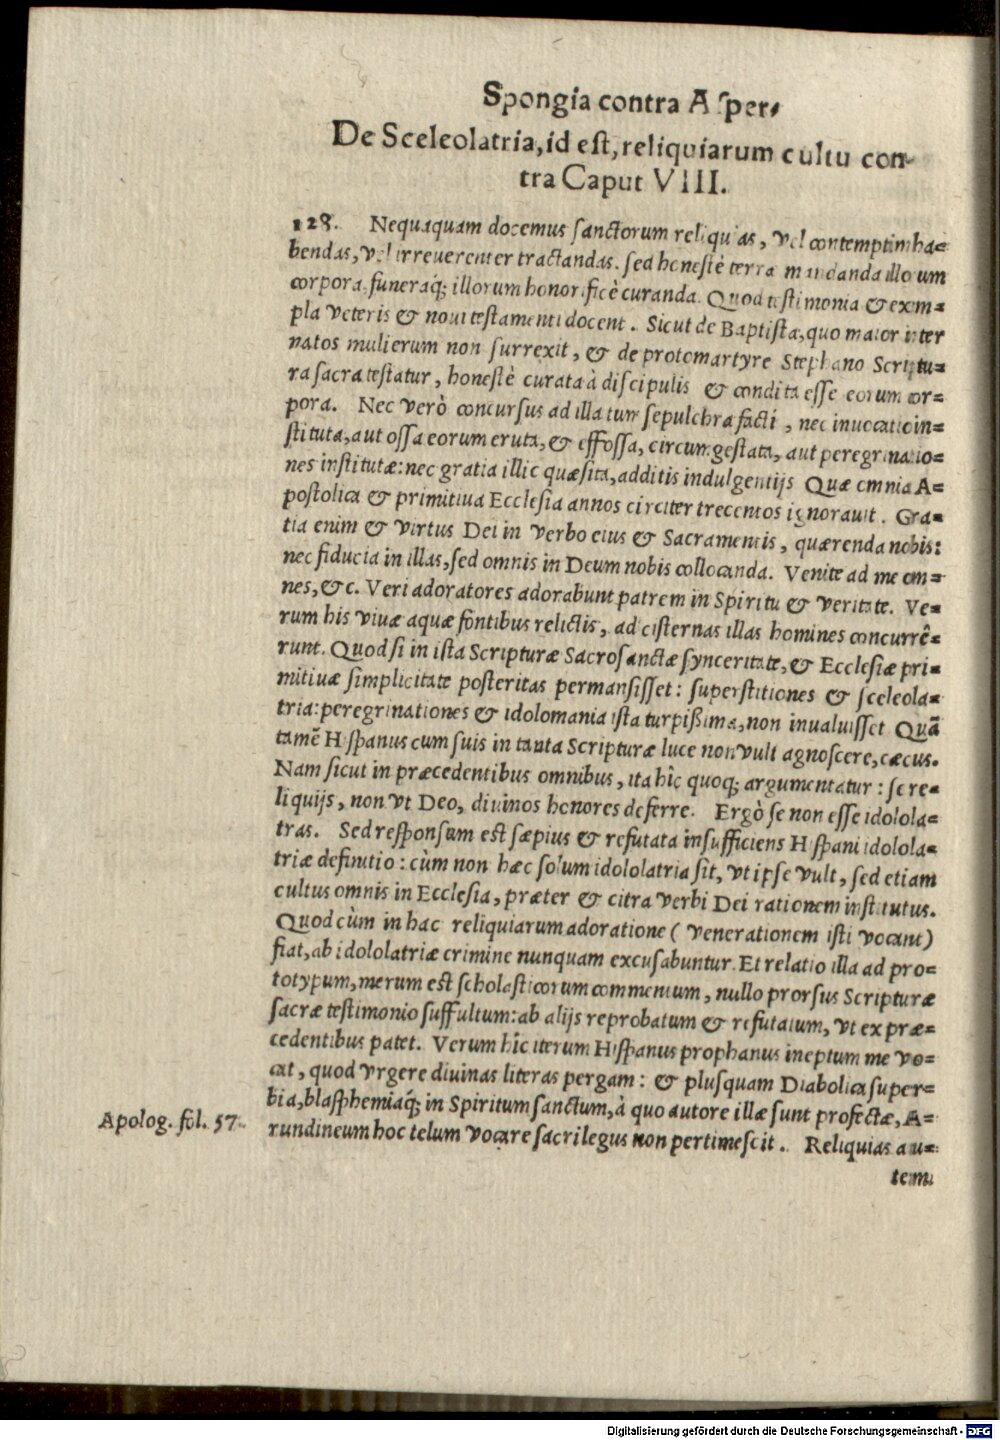 Spongia contra Asper⸗
De Sceleolatria, id est, reliquiarum cultu con-
tra Caput VIII.
128. Nequaquam docemus sanctorum reliquias, vel contemptim ha=
bendas, vel irreuerenter tractandas. sed honestè terra mandanda illorum
corpora. funeraq́; illorum honorificè curanda. Quod testimonia & exem=
pla veteris & noui testamenti docent. Sicut de Baptista, quo maior inter
natos mulierum non surrexit, & de protomartyre Stephano Scriptu=
ra sacra testatur, honestè curata à discipulis & condita esse eorum cor=
pora. Nec verò concursus ad illa tum sepulchra facti, nec inuocatio in=
stituta, aut ossa eorum eruta, & effossa, circumgestata, aut peregrinatio=
nes institutæ: nec gratia illic quæsita, additis indulgentijs Quæ omnia A=
postolica & primitiua Ecclesia annos circiter trecentos ignorauit. Gra=
tia enim & virtus Dei in verbo eius & Sacramentis, quærenda nobis:
nec fiducia in illas, sed omnis in Deum nobis collocanda. Venite ad me om=
nes, &c. Veri adoratores adorabunt patrem in Spiritu & veritate. Ve=
rum his viuæ aquæ fontibus relictis, ad cisternas illas homines concurrê=
runt. Quod si in ista Scripturæ Sacrosanctæ synceritate, & Ecclesiæ pri=
mitiuæ simplicitate posteritas permansisset: superstitiones & sceleola=
tria: peregrinationes & idolomania ista turpißima, non inualuisset Quā
tamē Hispanus cum suis in tanta Scripturæ luce non vult agnoscere, cæcus.
Nam sicut in præcedentibus omnibus, ita hîc quoq; argumentatur: se re=
liquijs, non vt Deo, diuinos honores deferre. Ergò se non esse idolola=
tras. Sed responsum est sæpius & refutata insufficiens Hispani idolola=
triæ definitio: cùm non hæc solum idololatria sit, vt ipse vult, sed etiam
cultus omnis in Ecclesia, præter & citra verbi Dei rationem institutus.
Quod cùm in hac reliquiarum adoratione ( venerationem isti vocant)
fiat, ab idololatriæ crimine nunquam excusabuntur. Et relatio illa ad pro=
totypum, merum est scholasticorum commentum, nullo prorsus Scripturæ
sacræ testimonio suffultum: ab alijs reprobatum & refutatum, vt ex præ=
cedentibus patet. Verum hîc iterum Hispanus prophanus ineptum me vo=
cat, quod vrgere diuinas literas pergam: & plusquam Diabolica super=
bia, blasphemiaq́; in Spiritum sanctum, à quo autore illæ sunt profectæ, A=
Apolog. fol. 57.
rundineum hoc telum vocare sacrilegus non pertimescit. Reliquias au=
tem
Digitalisierung gefördert durch die Deutsche Forschungsgemeinschaft - DFG